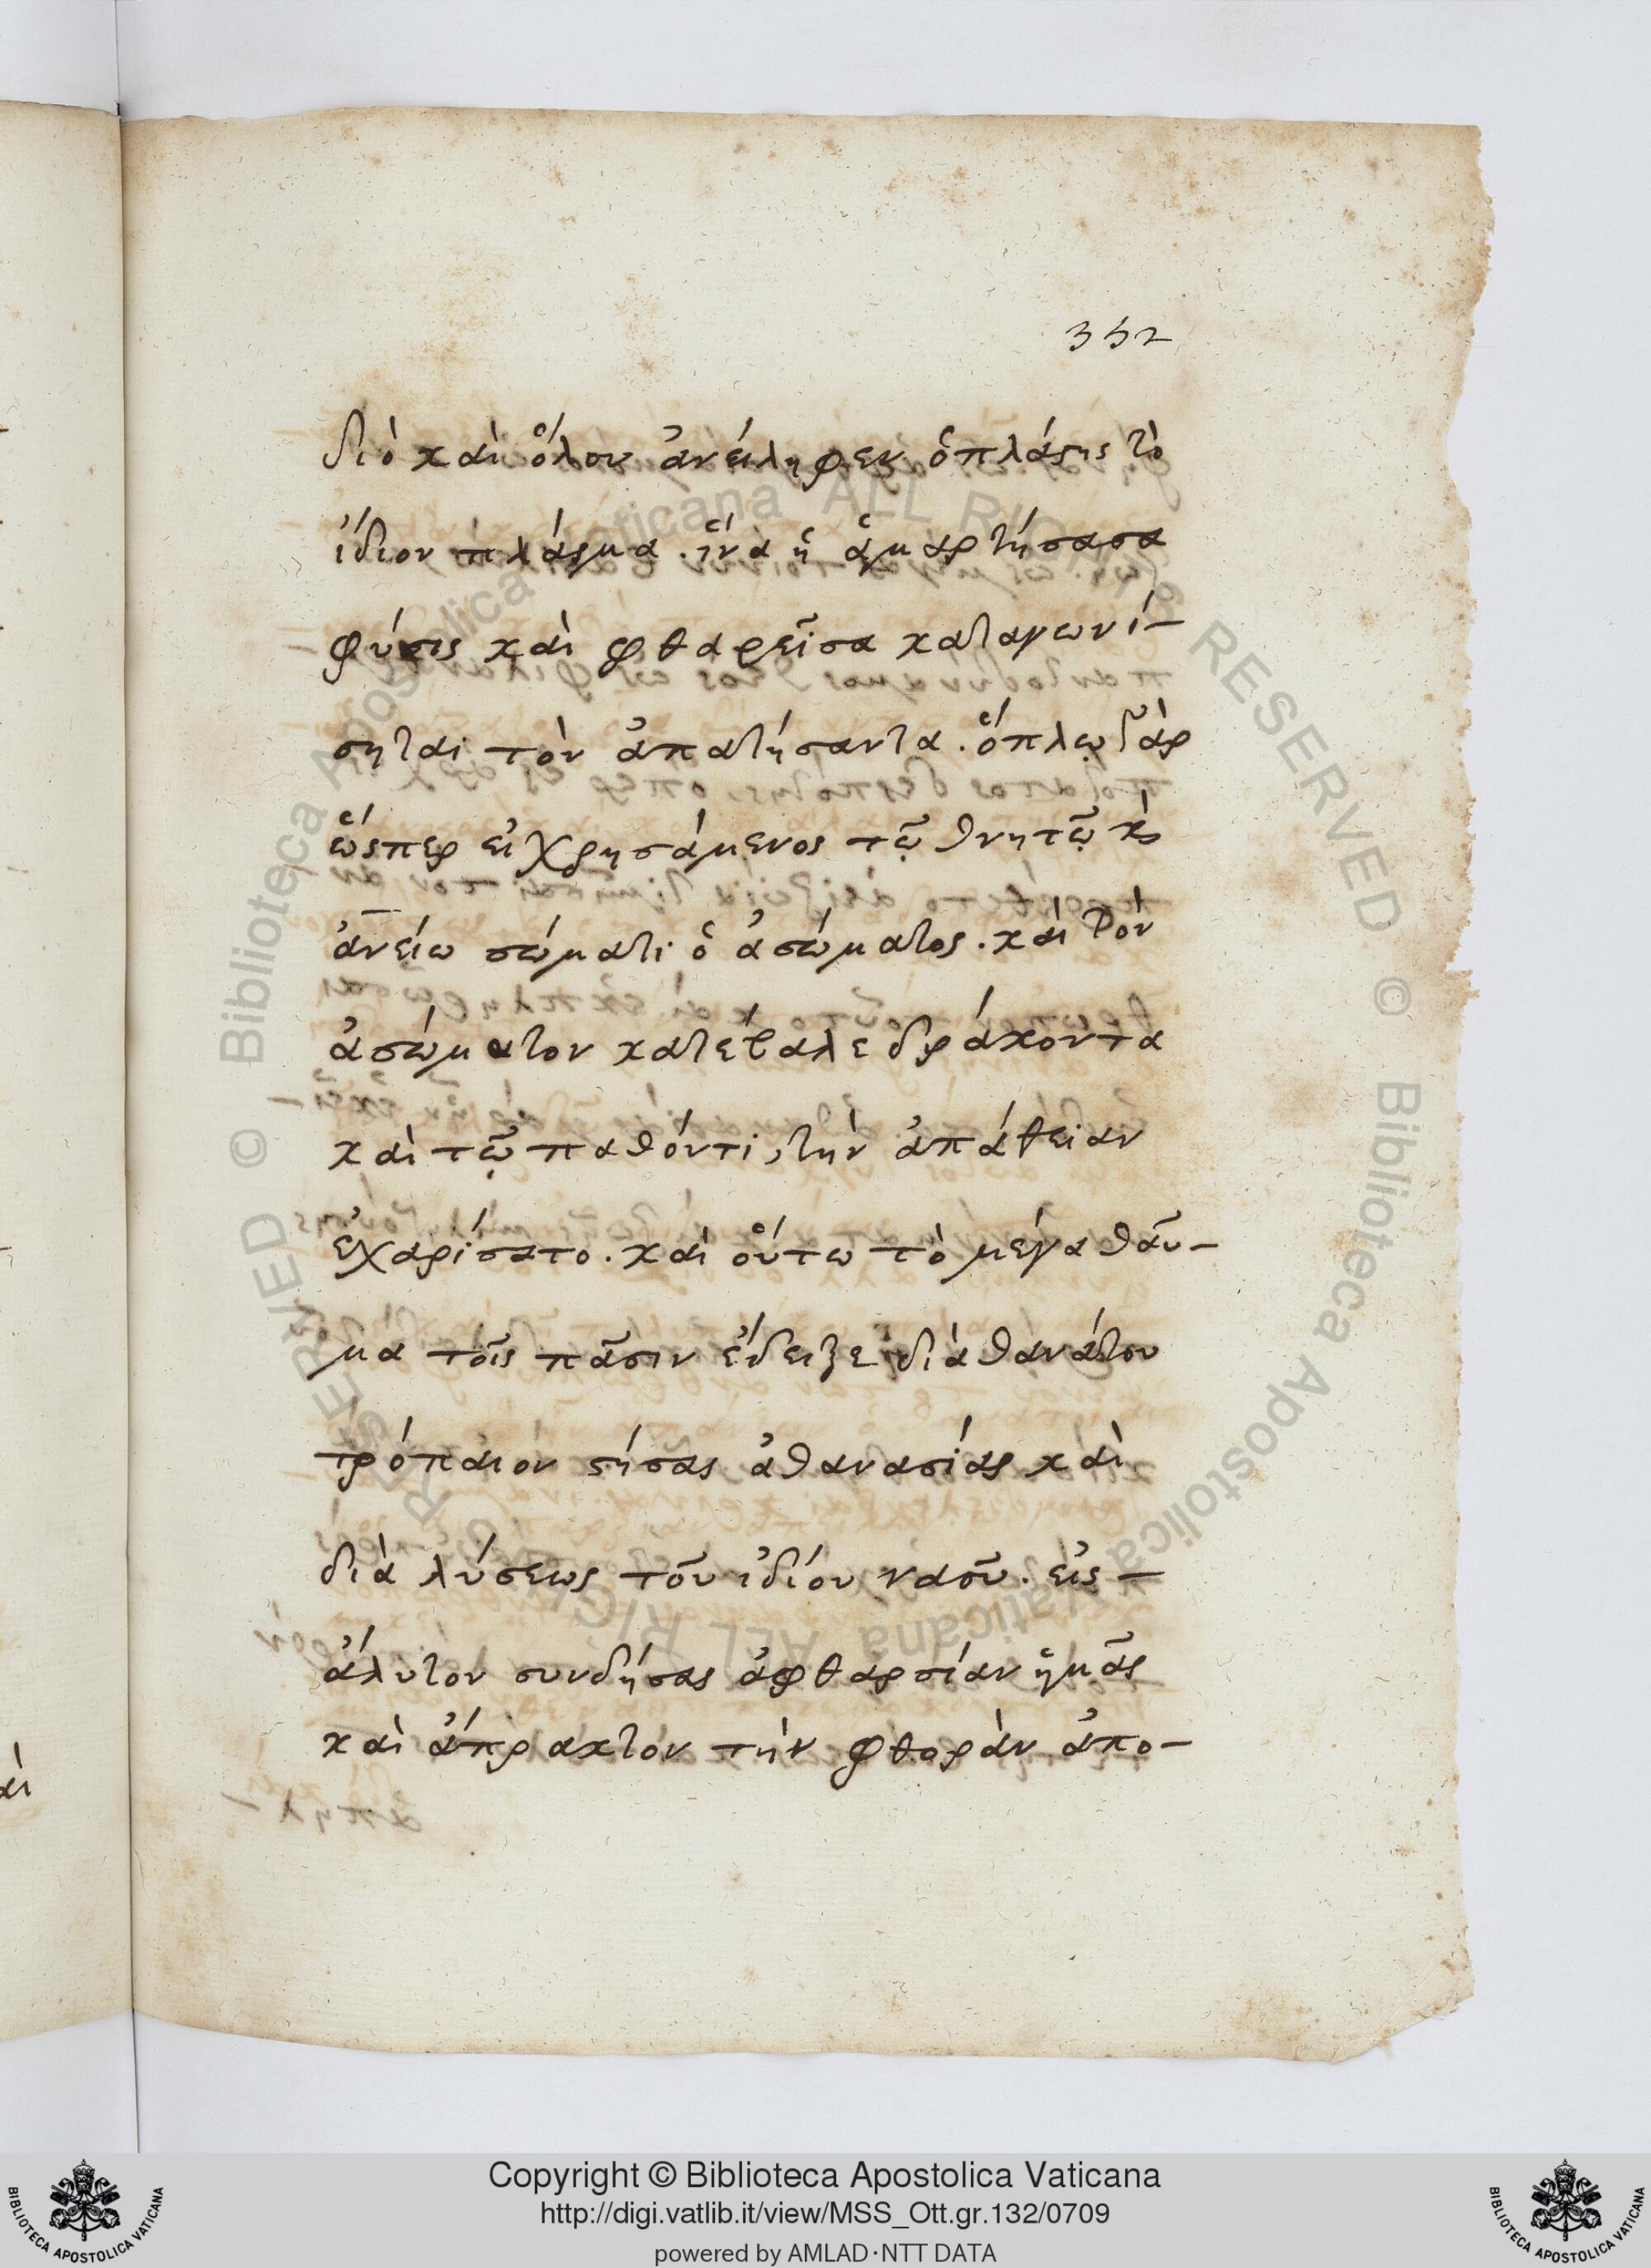 352
διὸ καὶ ὅλον ἀνείληφεν ὁ πλάστης τὸ
ἴδιον πλάσμα. ἵνα ἡ ἁμαρτήσασα
φύσις καὶ φθαρεῖσα καταγωνί-
σηται τὸν ἀπατήσαντα. ὅπλῳ γὰρ
ὥσπερ εἰ χρησάμενος τῷ θνητῷ κ(αὶ)
ἀνείω σώματι ὁ ἀσώματος. καὶ τὸν
ἀσώματον κατέβαλε δράκοντα
καὶ τῷ παθόντι, τὴν ἀπάθειαν
ἐχαρίσατο. καὶ οὕτω τὸ μέγα θαῦ-
μα τοῖς πᾶσιν ἔδειξε διὰ θανάτου
τρόπαιον στήσας ἀθανασίας καὶ
διὰ λύσεως τοῦ ἰδίου ναοῦ. εἰς -
ἄλυτον συνδήσας ἀφθαρσίαν ἡμᾶς
καὶ ἄπρακτον τὴν φθορὰν ἀπο-
Copyright © Biblioteca Apostolica Vaticana
http://digi.vatlib.it/view/MSS_Ott.gr.132/0709
powered by AMLAD·NTT DATA
© Biblioteca Apostolica Vaticana ALL RIGHTS RESERVED
© Biblioteca Apostolica Vaticana ALL RIGHTS RESERVED
BIBLIOTECA APOSTOLICA VATICANA
BIBLIOTECA APOSTOLICA VATICANA